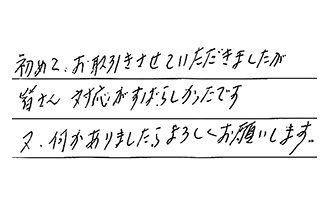 初めて、お取引きさせていただきましたが
皆さん 対応がすばらしかったです
又、何かありましたらよろしくお願いします。